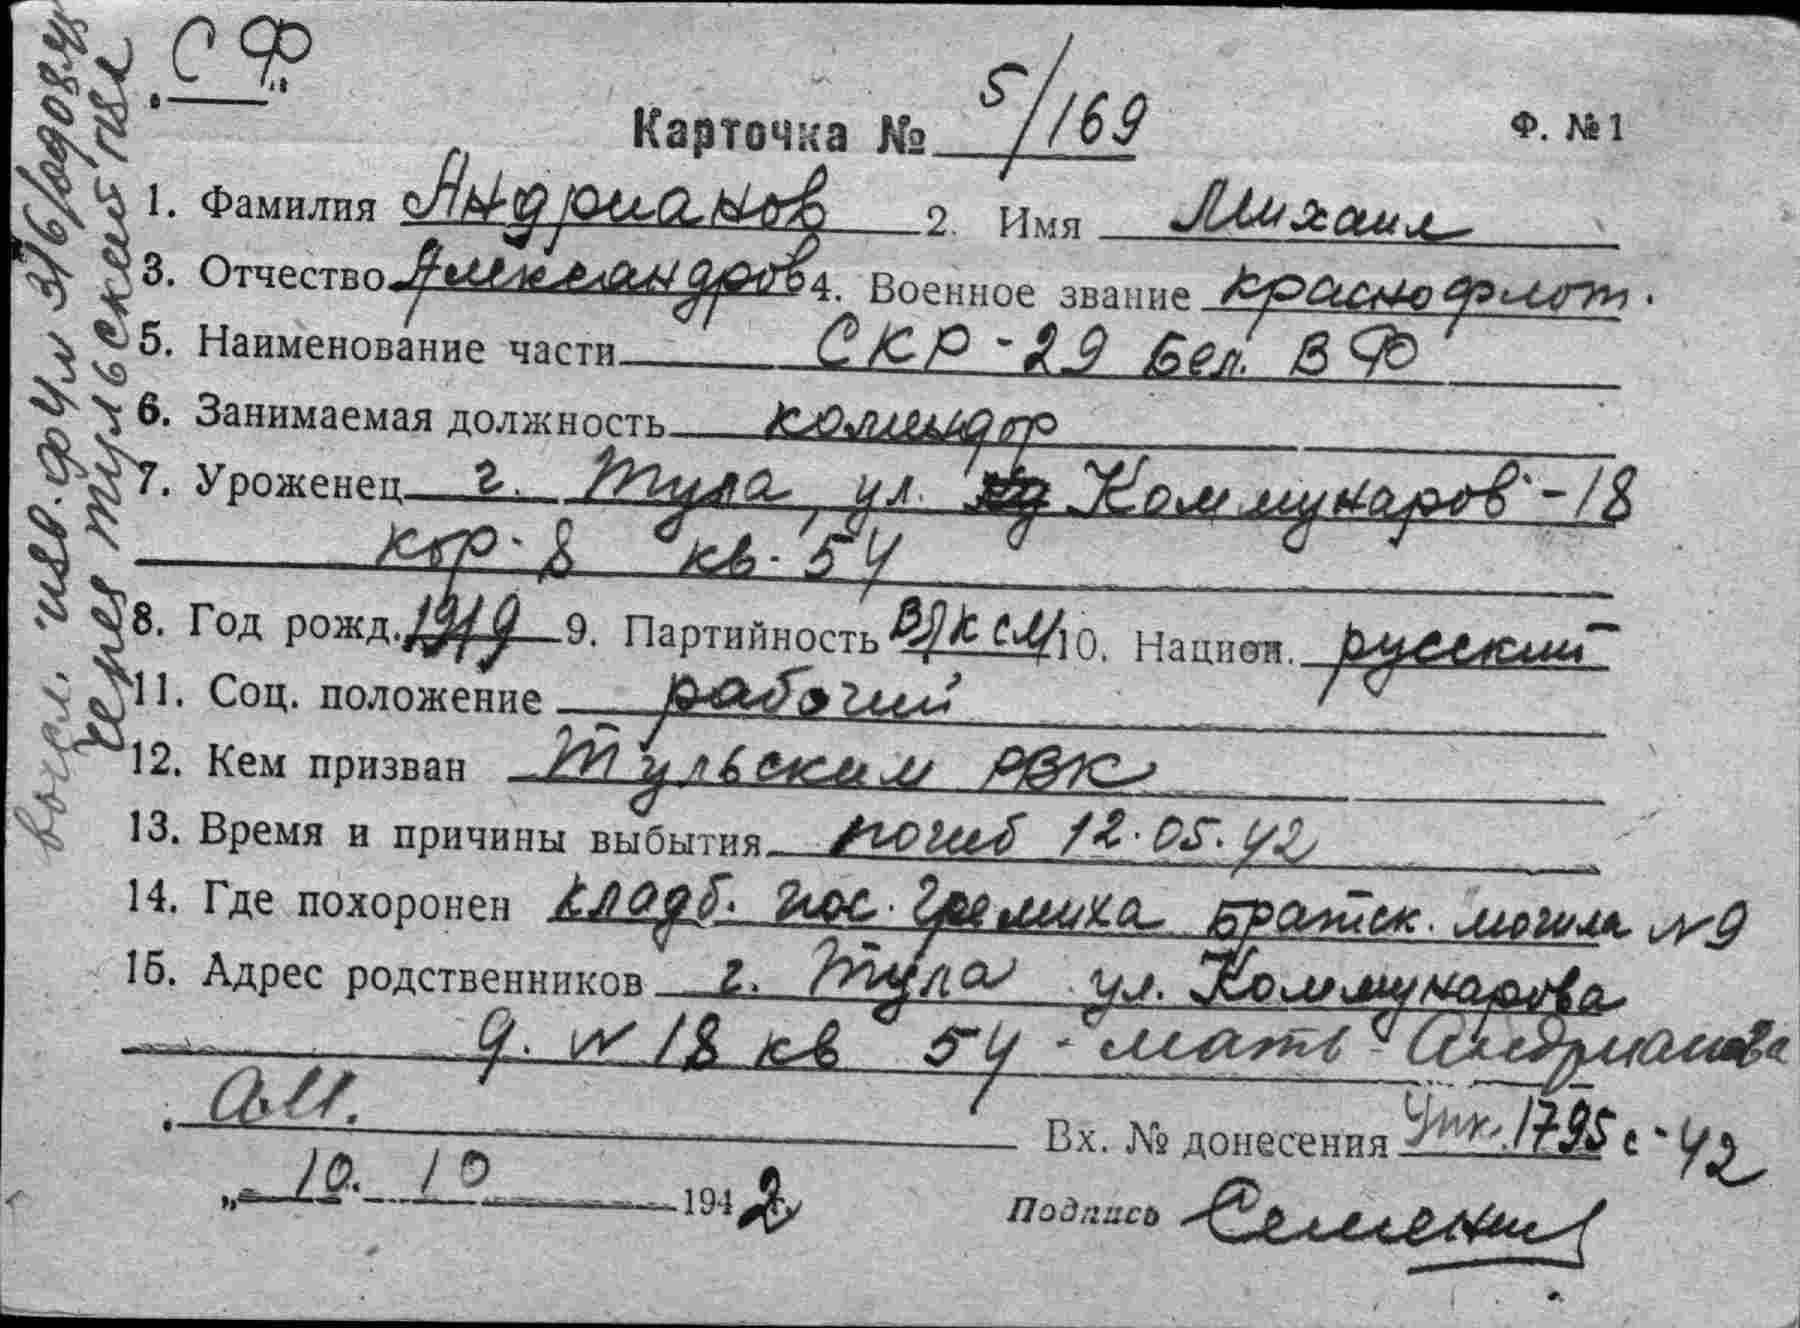 СФ
Карточка № 5/169
Ф. № 1
1. Фамилия Андрианов 2. Имя Михаил
3. Отчество Александров 4. Военное звание краснофлот.
5. Наименование части СКР-29 Бел. ВФ
6. Занимаемая должность комендор
7. Уроженец г. Тула, ул. Коммунаров-18
кор. 8 кв. 54
8. Год рожд. 1919 9. Партийность ВЛКСМ 10. Национ. русский
11. Соц. положение рабочий
12. Кем призван Тульским РВК
13. Время и причины выбытия погиб 12.05.42
14. Где похоронен кладб. пос. Гремиха братск. могила N 9
15. Адрес родственников г. Тула ул. Коммунарова
д. N 18 кв 54 - мать - Андрианова
А.М.
Вх. № донесения 1795с-42
„ 10. 10 1942
Подпись
высл. изв. ф 4 м 316/
через Тульский ГВК